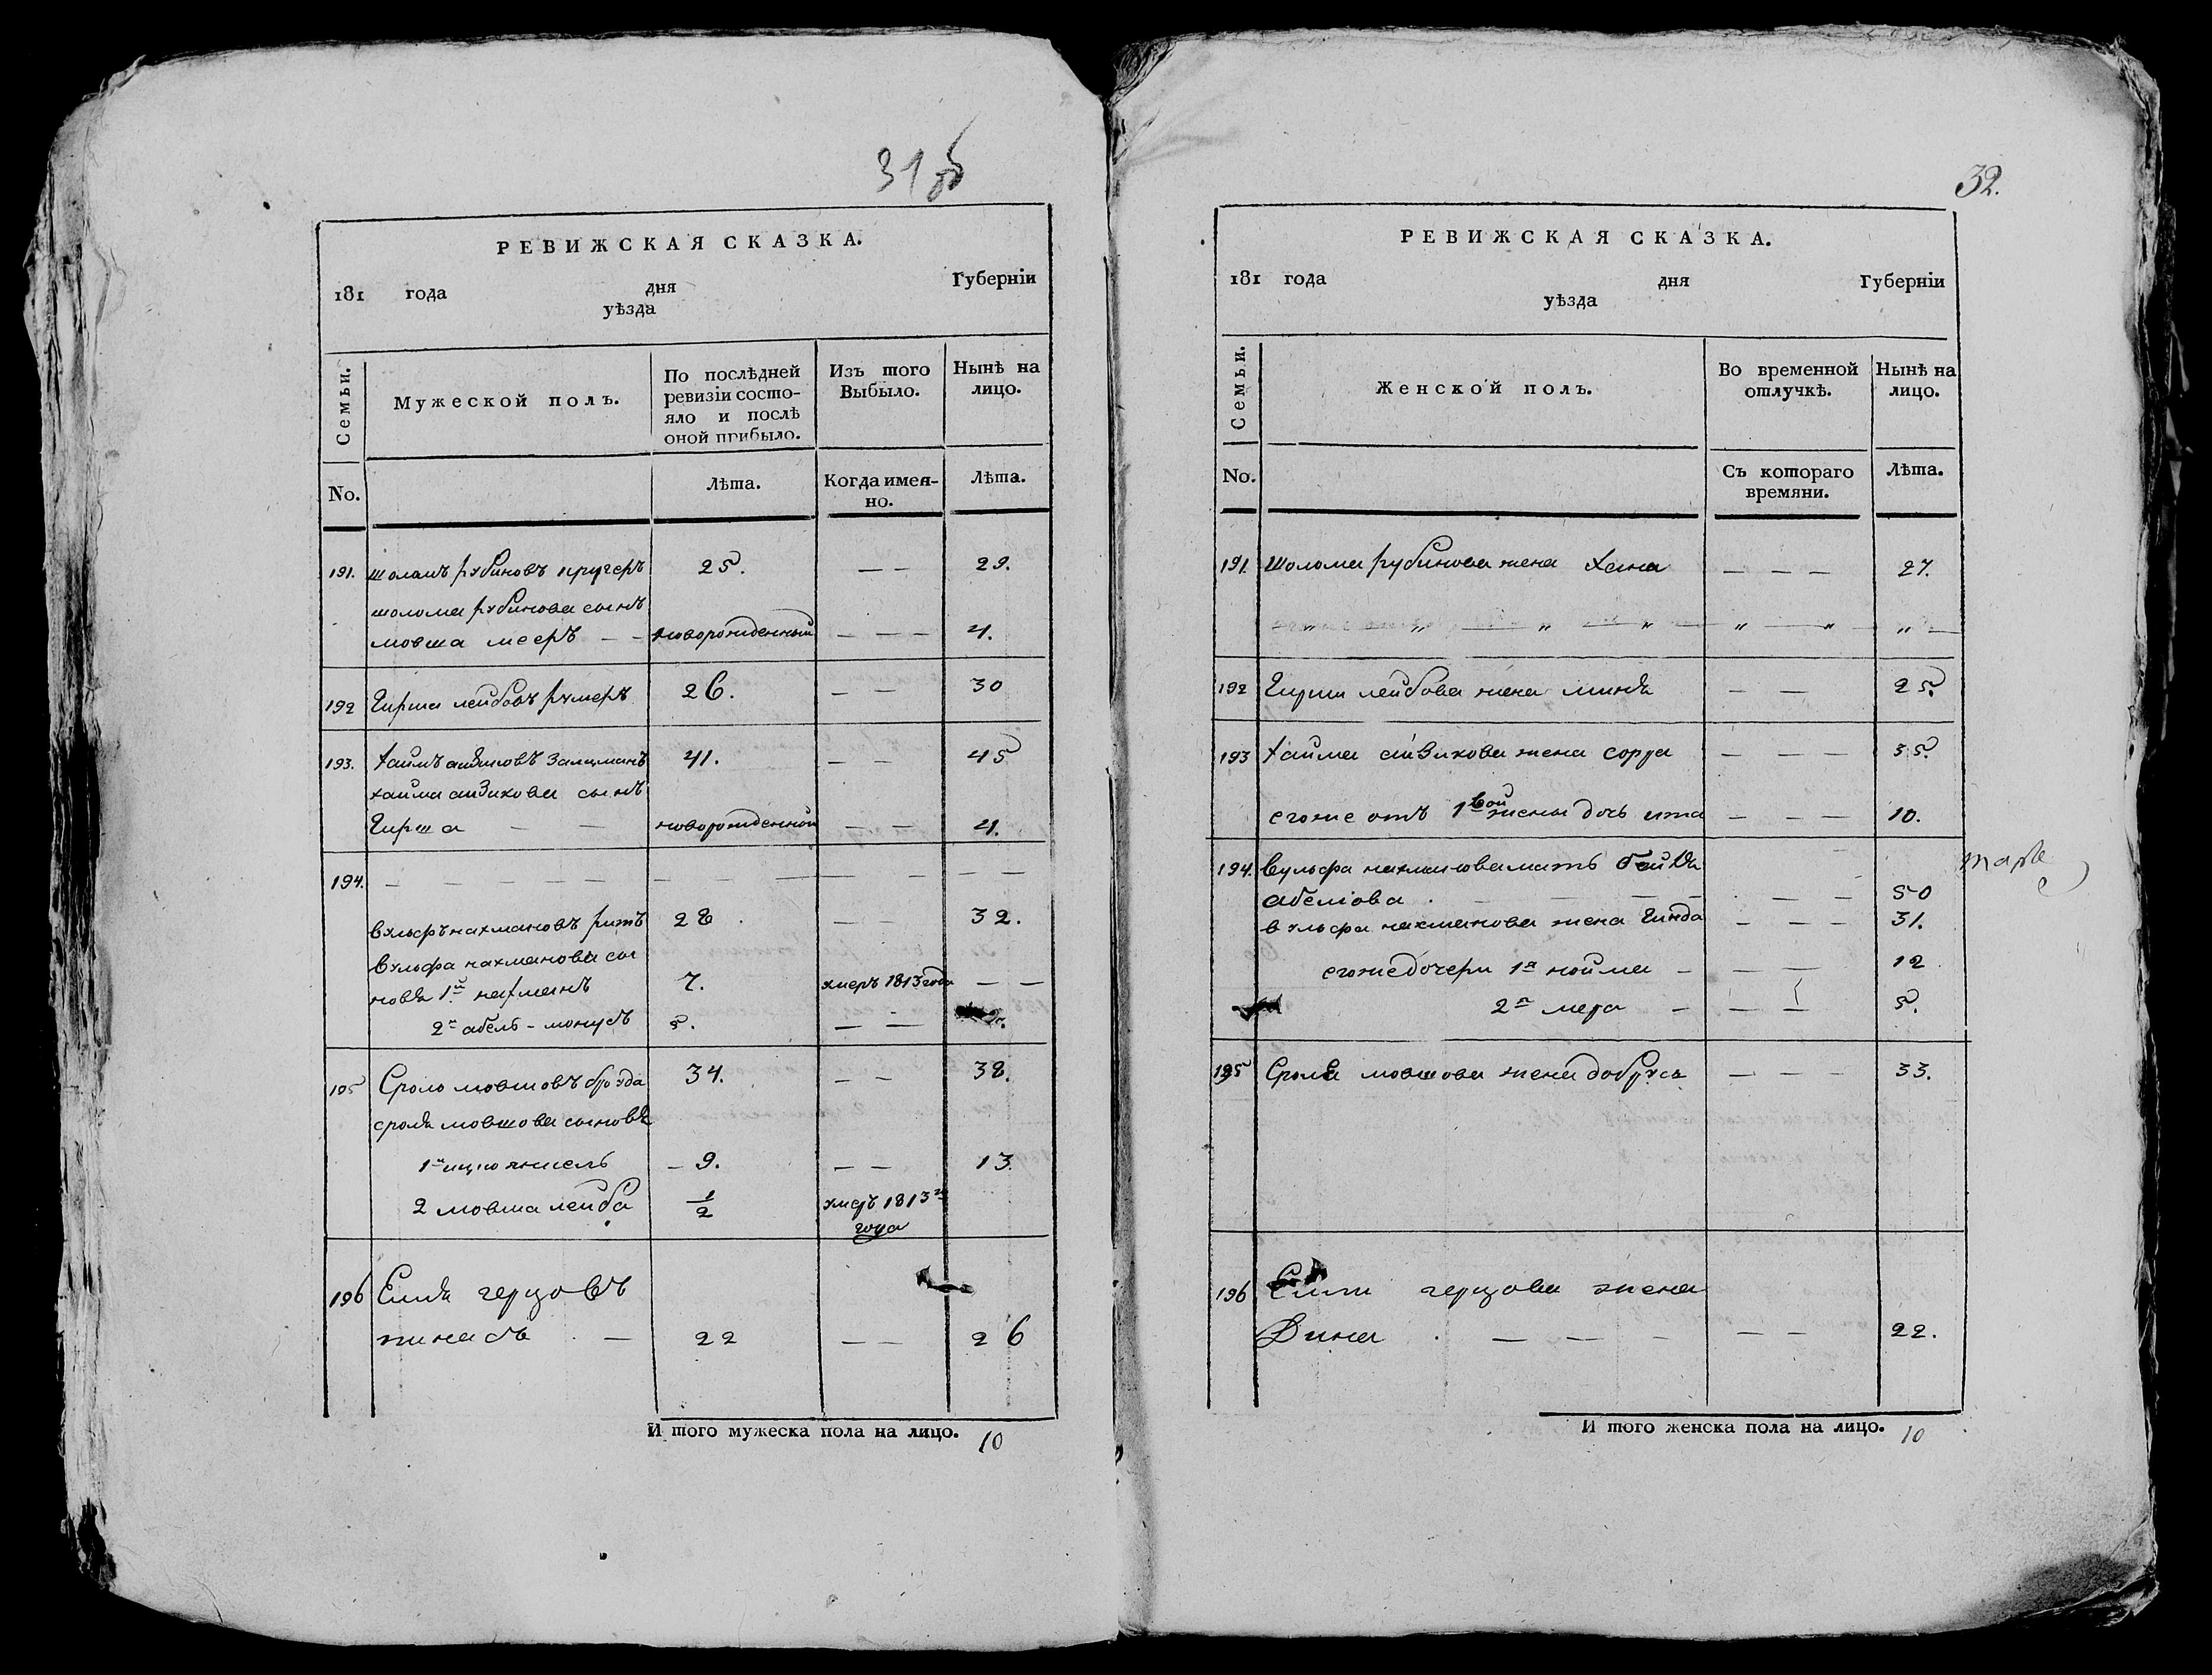 31 об
РЕВИЖСКАЯ СКАЗКА.
181 года дня Губерніи
уѣзда
Семьи. Мужеской полъ. По послѣдней ревизіи состо- Изъ того Нынѣ на
яло и послѣ Выбыло. лицо.
оной прибыло.
No. Лѣта. Когда имен- Лѣта.
но.
191. шоламъ рубиновъ кругеръ 25. — — 29.
шолома рубинова сынъ
мовша мееръ — — новорожденный — — — 4.
192 Гирша лейбовъ румеръ 26. — — 30
193. хаимъ айзиковъ Залцманъ 41. — — 45
хаима айзикова сынъ
Гирша — — новорожденной — — 4.
194. — — — — — — — — — —
вульфъ нахмановъ ритъ 28 — — 32.
вульфа нахманова сы
новья 1й нахманъ 7. умеръ 1813 года — —
2й абель-монусъ 5. — —
195 Сроль мовшовъ брозда 34. — — 38.
сроля мовшова сыновья
1й ицко — 9. — — 13.
2 мовша лейба 1/2 умеръ 1813го
года
196 Еиля герцовъ
пинасъ — 22 — — 26
И того мужеска пола на лицо. 10
32.
РЕВИЖСКАЯ СКАЗКА.
181 года дня Губерніи
уѣзда
Семьи. Женской полъ. Во временной Нынѣ на
отлучкѣ. лицо.
No. Съ котораго Лѣта.
времяни.
191. Шолома рубинова жена хана — — — 27.
„ „ „ „ „ „ „
192 Гирши лейбова жена миндя — — 25.
193 хаима айзикова жена сорра — — — 35.
егоже отъ 1вой жены дочь ита — — — 10.
194. вульфа нахманова мать
абеліова — — — 50
вульфа нахманова жена Гинда — — — 31.
егоже дочери 1я нойма — — — 12
2я мера — — — 5.
195 Сроля мовшова жена добруса — — — 33.
196 Еили герцова жена
Дина — — — — — 22.
И того женска пола на лицо. 10